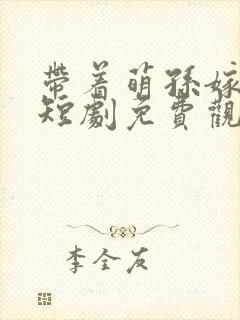 帶着萌孫嫁
短劇免費觀
李全友